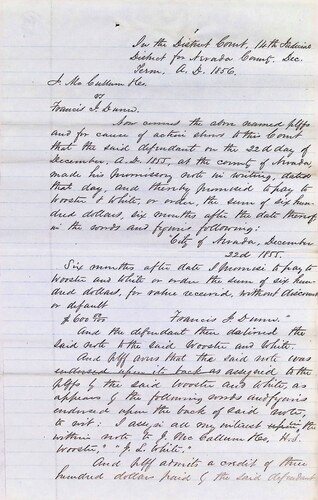 In the District Court, 14th Judicial
District for Nevada County, Dec.
Term, A.D. 1856.
J. McCallum &co.
vs
Francis J. Dunn.
Now comes the above named plffs
and for cause of action shows to this Court
that the said defendant on the 22d day of
December, A.D. 1855, at the county of Nevada,
made his promissory note in writing, dated
that day, and thereby promised to pay to
Wooster & White, or order, the sum of six hun-
dred dollars, six months after the date thereof
in the words and figures following:
"City of Nevada, December
22d 1855.
Six months after date I promise to pay to
Wooster and White or order the sum of six hun-
dred dollars, for value received, without discount
or default
$600 00/100 Francis J. Dunn."
And the defendant then delivered the
said note to the said Wooster and White.
And plff avers that the said note was
endorsed upon its back as assigned to the
plffs by the said Wooster and White, as
appears by the following words and figures
endorsed upon the back of said note,
to wit: I assign all my interest in the
within note to J. McCallum &co. H.S.
Wooster," "J. L. White."
And plff admits a credit of three
hundred dollars paid by the said defendant